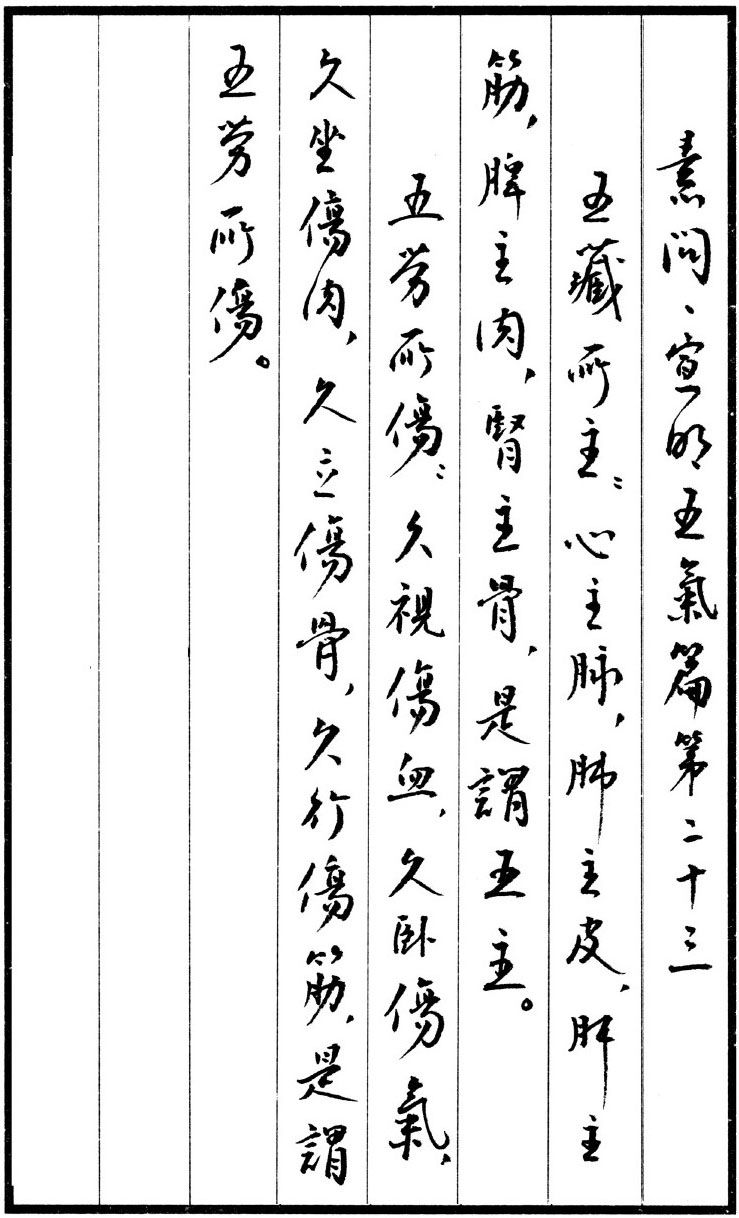 素問、宣明五氣篇第二十三
五藏所主：心主脉，肺主皮，肝主
筋，脾主肉，腎主骨，是謂五主。
五勞所傷：久視傷血，久臥傷氣，
久坐傷肉，久立傷骨，久行傷筋，是謂
五勞所傷。